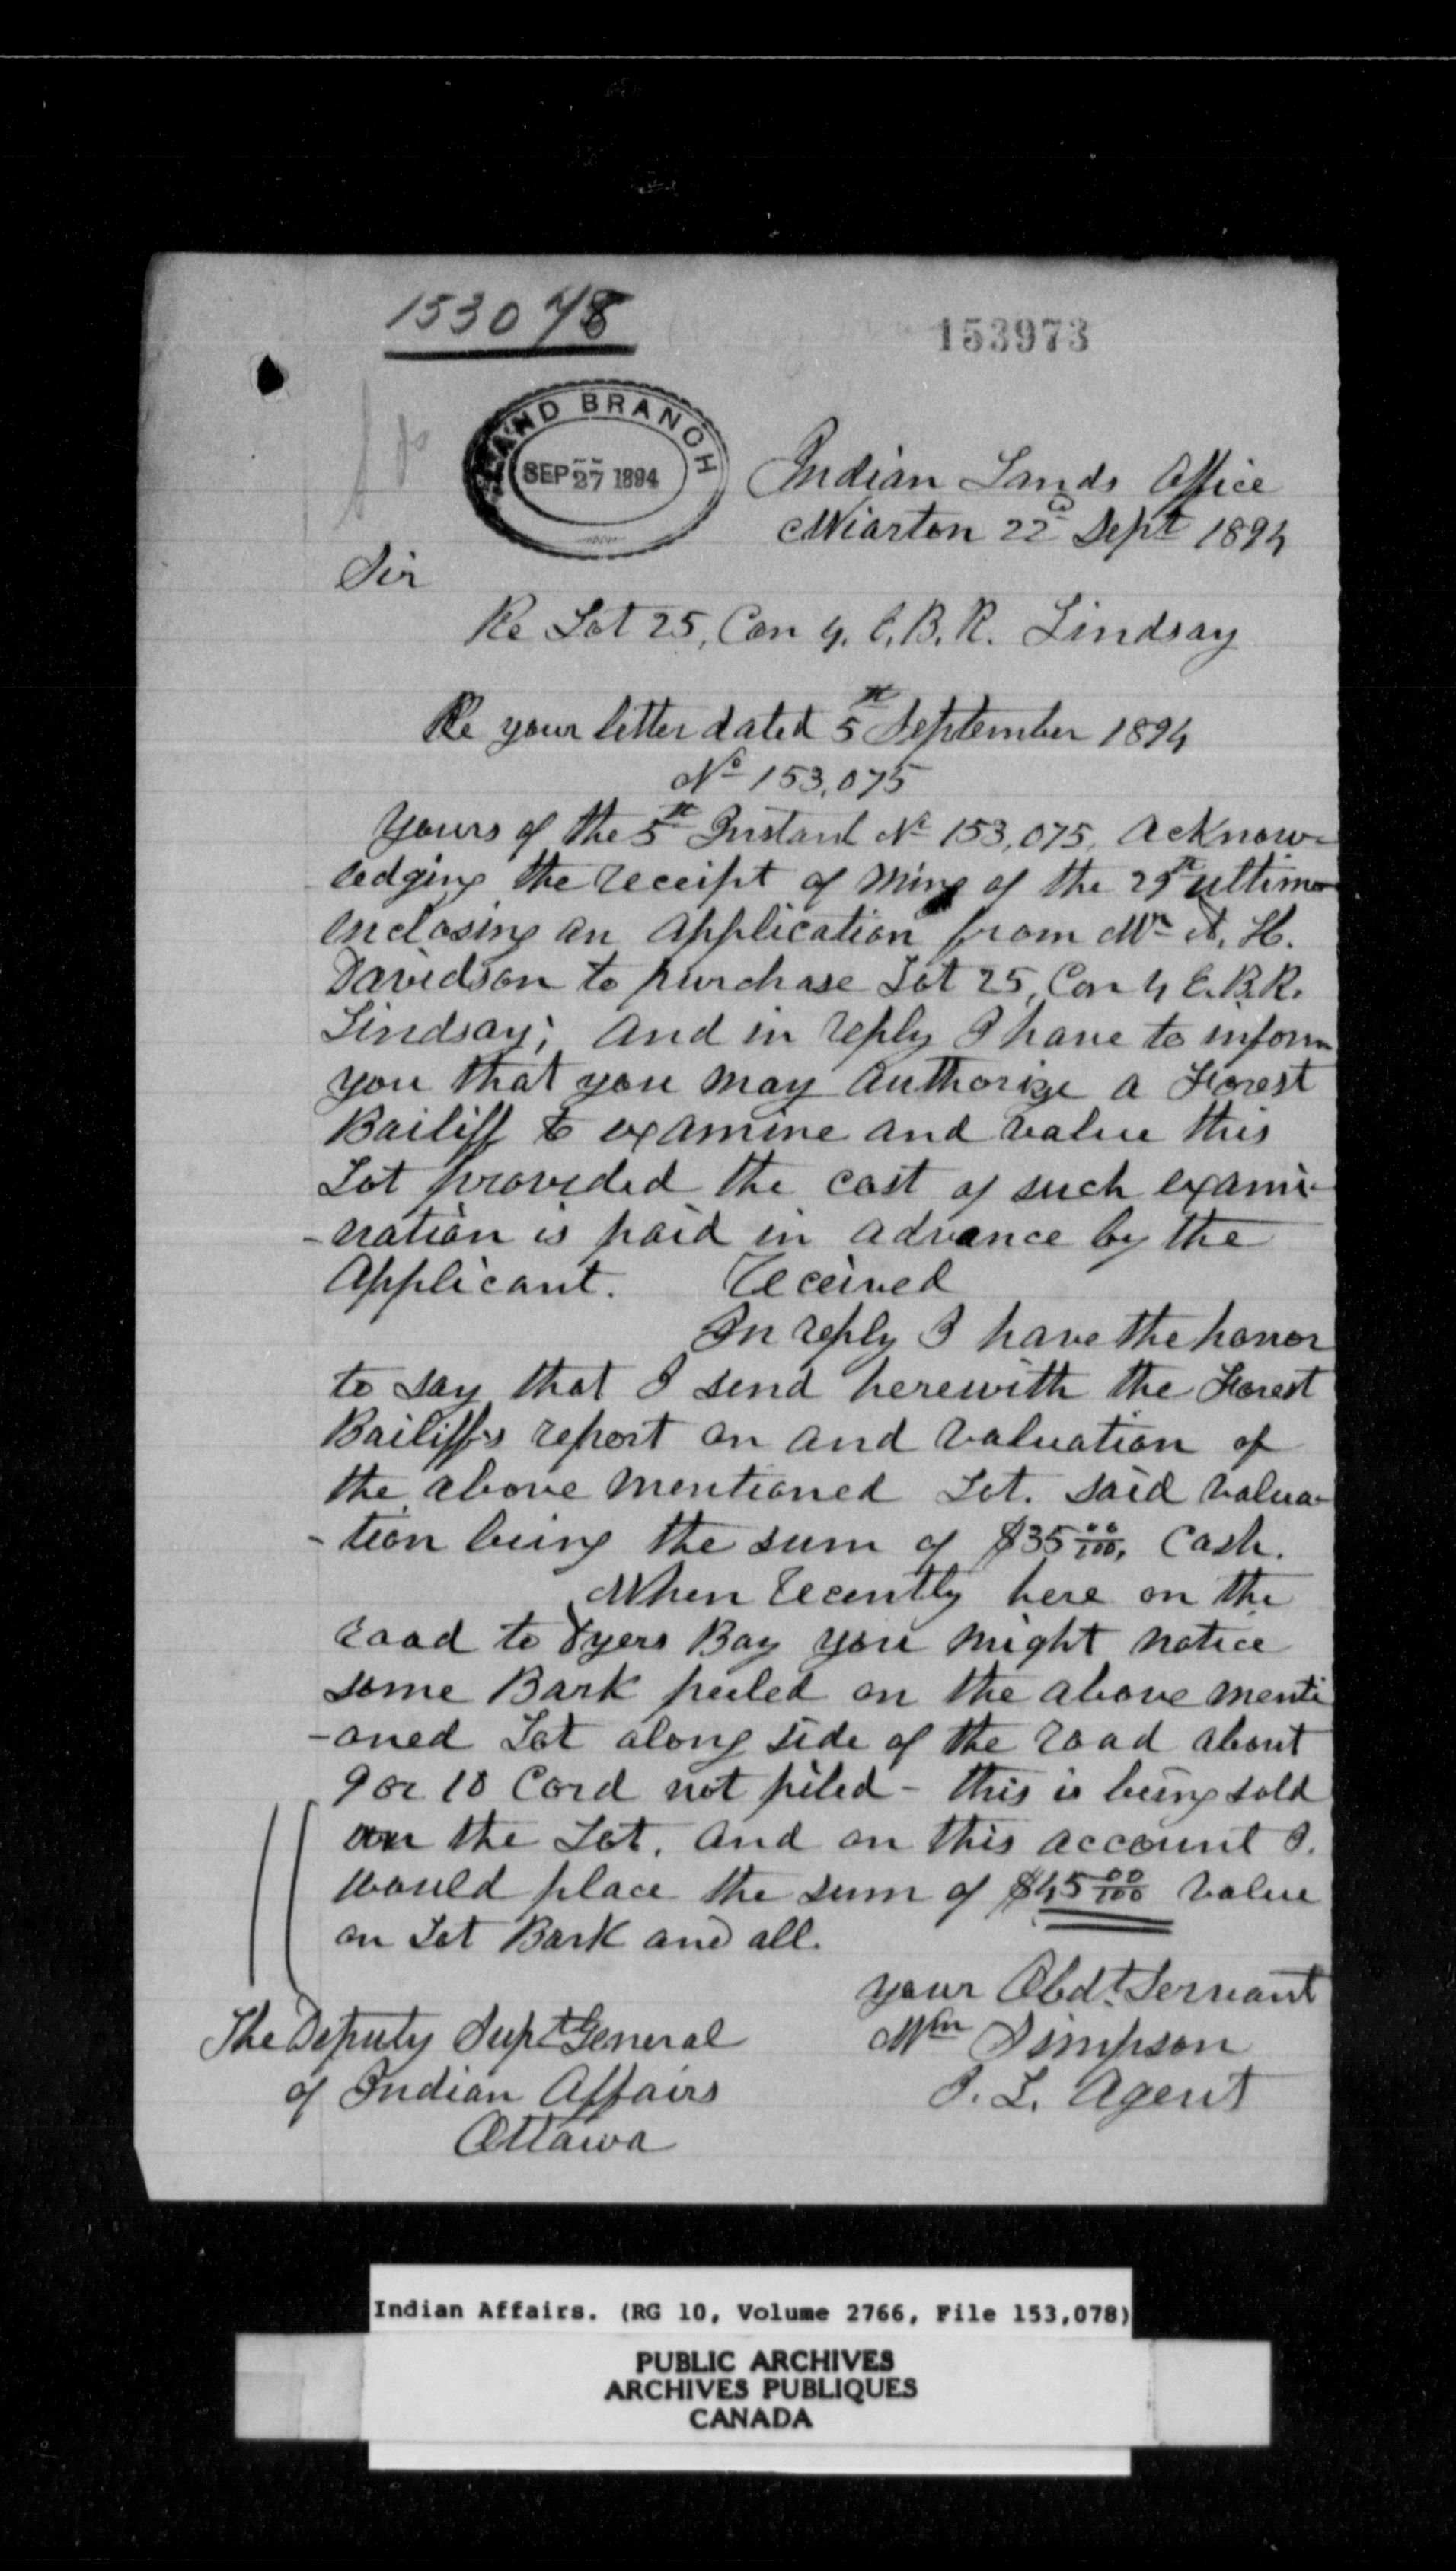 153078
153973
LAND BRANCH
SEP 27 1894
Indian Lands Office
Wiarton 22d Sept 1894
Sir
Re Lot 25, Con 4. E. B. R. Lindsay
Re your letter dated 5th September 1894
No 153,075
Yours of the 5th Instant No 153,075, acknow-
ledging the receipt of mine of the 29th ultimo
enclosing an application from Mr A. H.
Davidson to purchase Lot 25, Con 4 E. B. R.
Lindsay; and in reply I have to inform
you that you may authorize a Forest
Bailiff to examine and value this
Lot provided the cost of such exami-
-nation is paid in advance by the
Applicant. Received
In reply I have the honor
to say that I send herewith the Forest
Bailiff's report on and valuation of
the above mentioned Lot. said valua-
-tion being the sum of $35 00/100, Cash.
When recently here on the
road to Dyers Bay you might notice
some Bark peeled on the above menti
-oned Lot along side of the road about
9 or 10 Cord not piled - this is being sold
on the Lot, and on this account I.
would place the sum of $45 00/100 value
on Lot Bark and all.
your Obdt. Servant
Wm Simpson
I. L. Agent
The Deputy Supt General
of Indian Affairs
Ottawa
Indian Affairs. (RG 10, Volume 2766, File 153,078)
PUBLIC ARCHIVES
ARCHIVES PUBLIQUES
CANADA